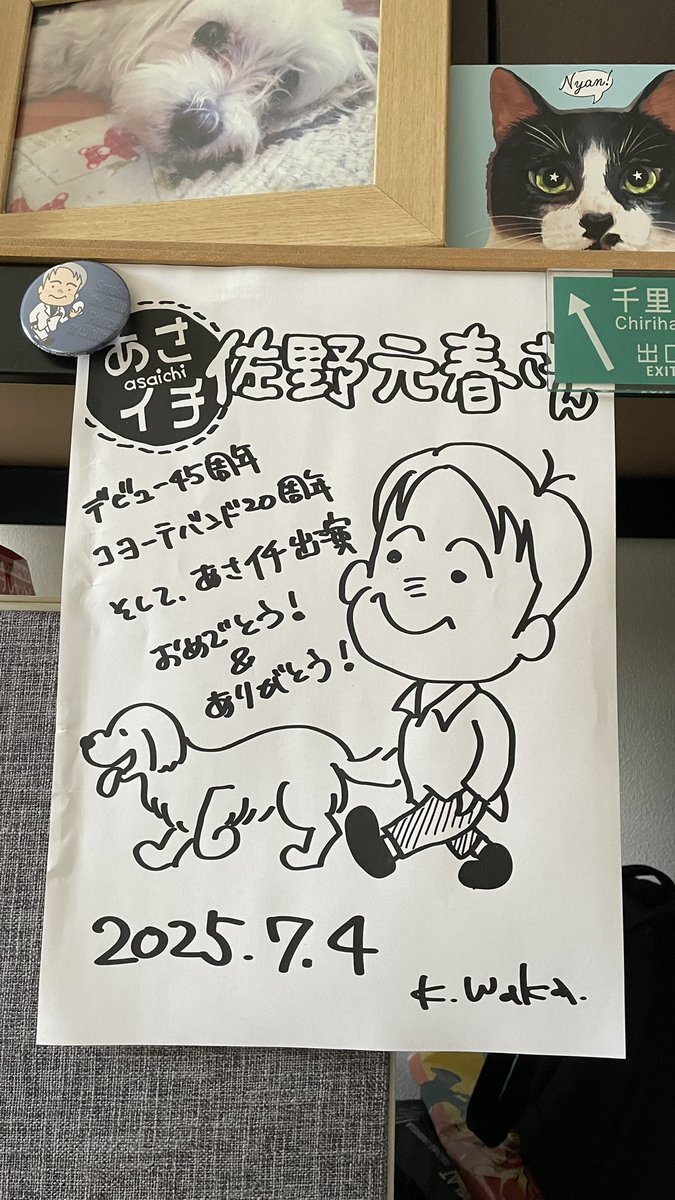 Nyan!
千里
Chiriha
出口
EXIT
あさ
asaichi
イチ
佐野元春さん
デビュー45周年
コヨーテバンド20周年
そして、あさイチ出演
おめでとう!
&
ありがとう!
2025.7.4
K.Waka.